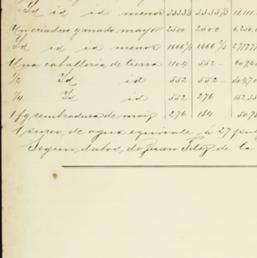 Id id id menor 3333⅓ 3333⅓ 11,111.
Un criadero ganado mayor 2500 2500 6,250.0
Id id id menor 1666⅔ 1666⅔ 2,777.7
Una caballería de tierra 1104 552
½ Id id 552 552
¼ Id id 552 276 152,35
1 fg sembradura de maiz 276 184 50,78
1 surco de agua equivale á 27 pul
Segun datos de Juan Fdez de la